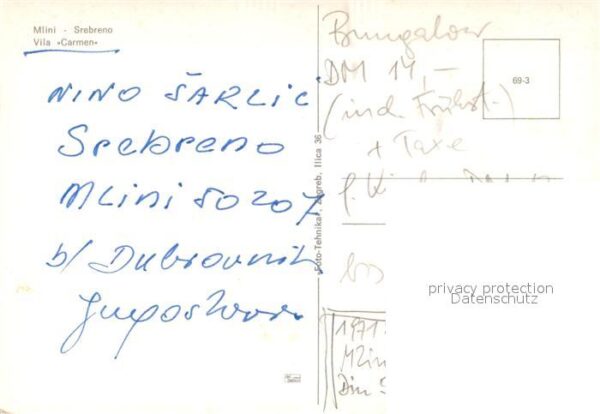 Mlini - Srebreno
Vila »Carmen«
NINO ŠARLIĆ
Srebreno
MLINI 50207
b/ Dubrovnik
Jugoslavia
»Foto-Tehnika«, Zagreb, Ilica 36
Bungalow
DM 14,-
(incl. Frühst.)
+ Taxe
69-3
bis
privacy protection
Datenschutz
1971
Mlin
Din